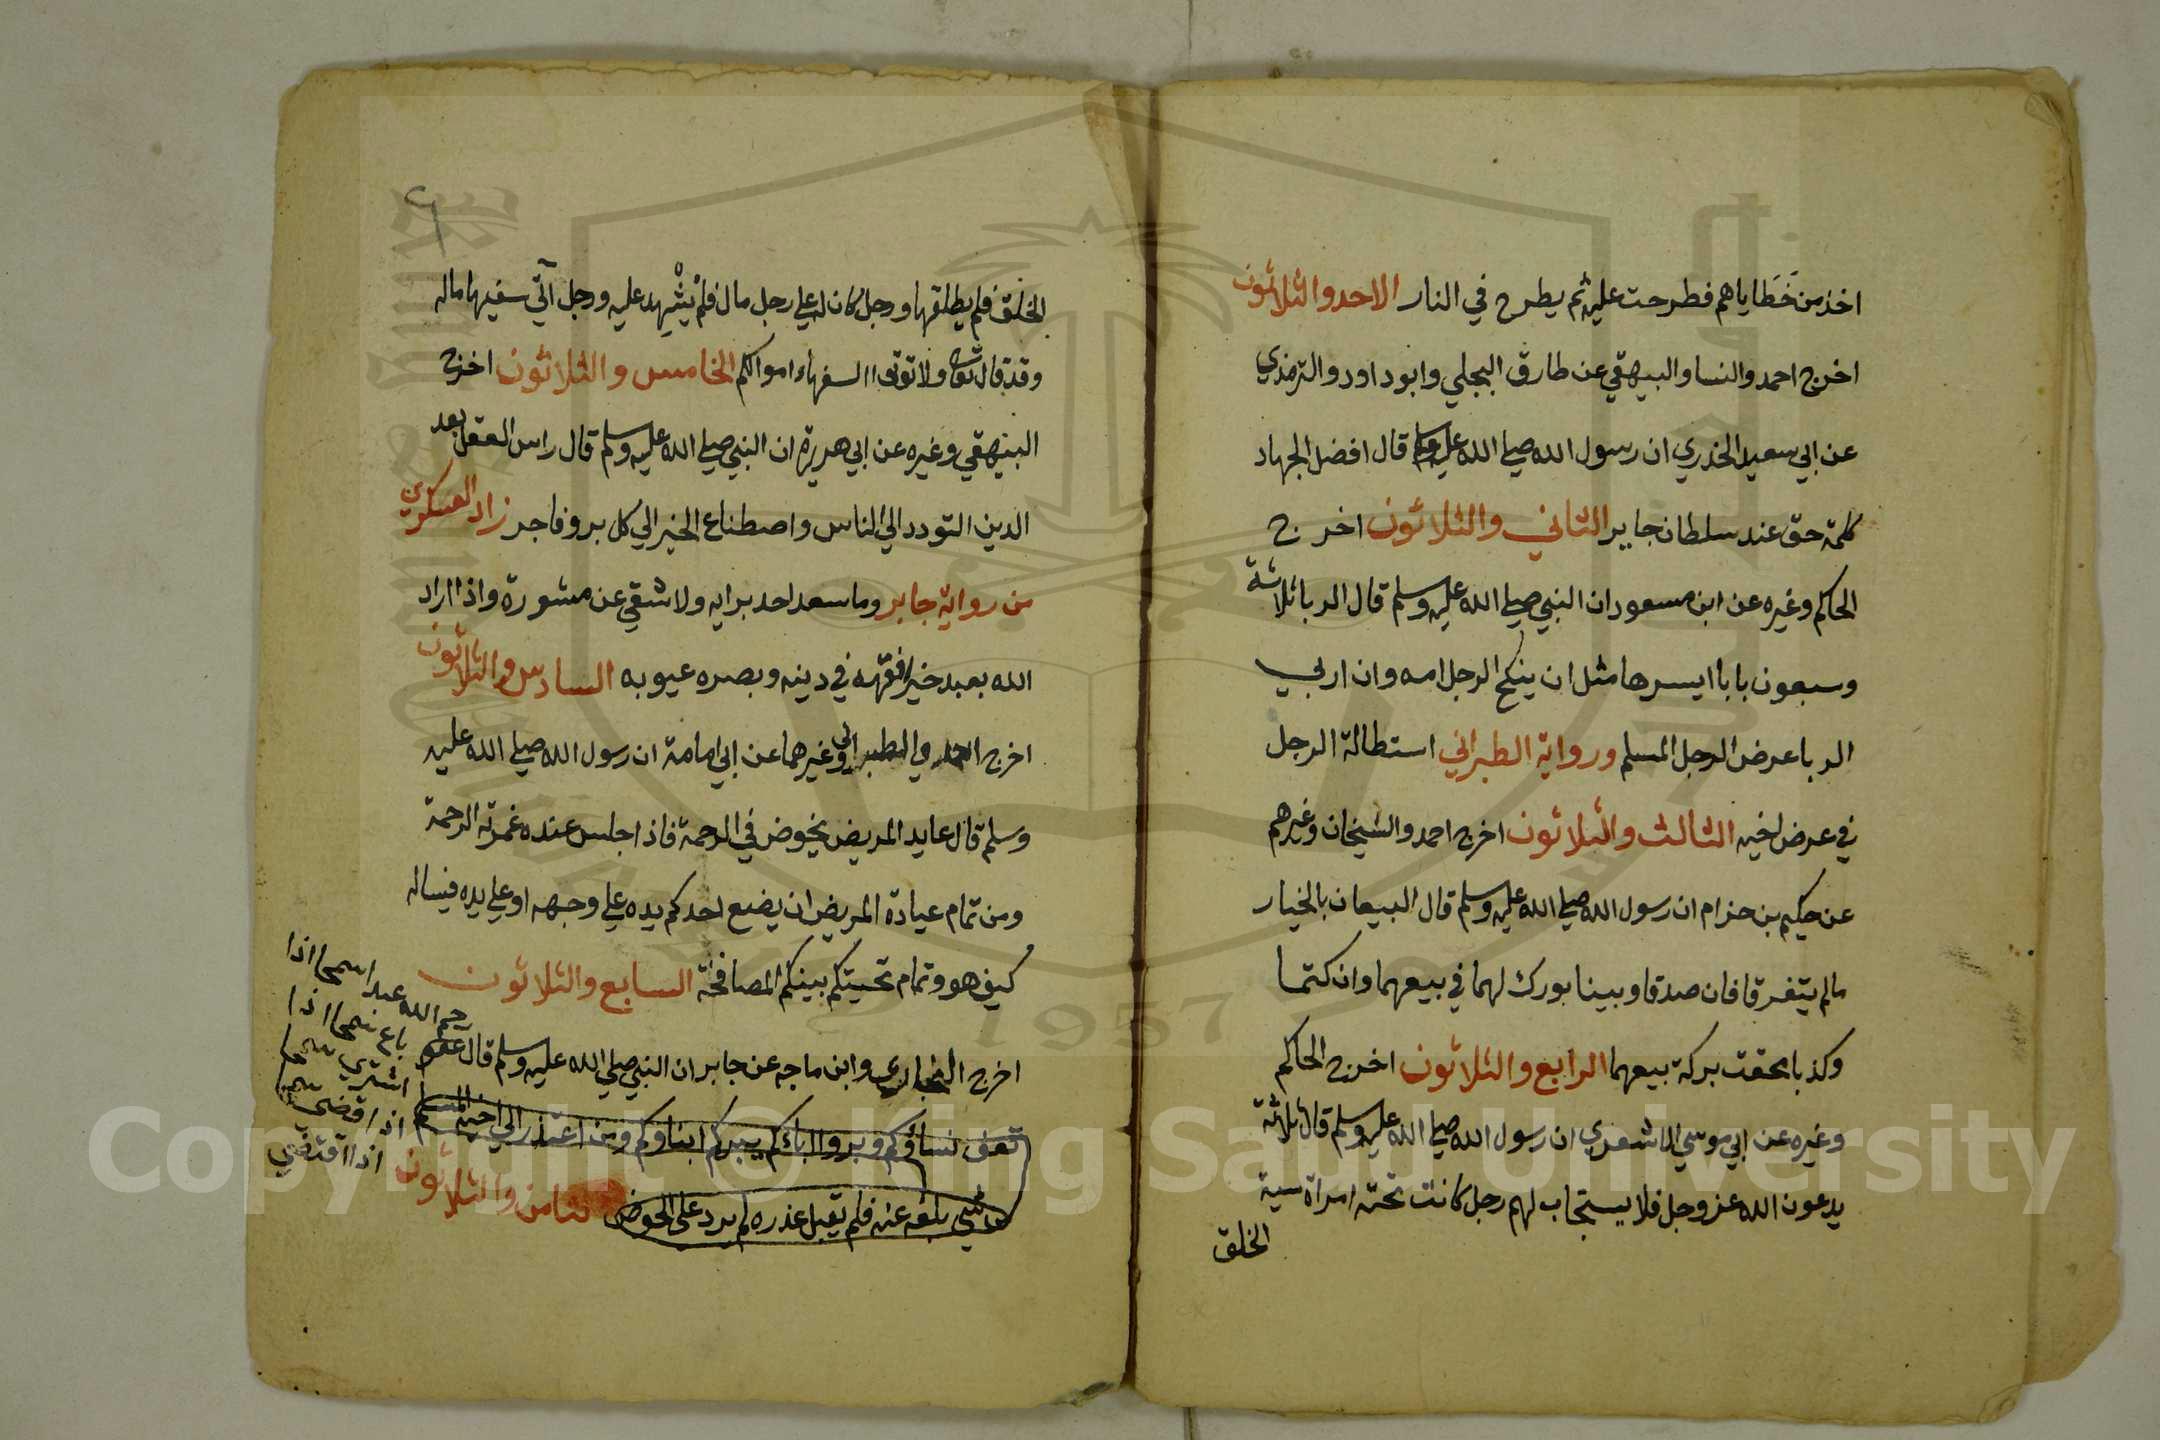 اخذ من خَطَاياهم فطرحت عليه ثم يطرح في النار الاحد والثلاثون
اخرج احمد والنسا والبيهقي عن طارق البجلي وابو داود والترمذي
عن ابي سعيد الخدري ان رسول الله صلي الله عليه وسلم قال افضل الجهاد
كلمة حق عند سلطان جاير الثاني والثلاثون اخرج
الحاكم وغيره عن ابن مسعود ان النبي صلي الله عليه وسلم قال الربا ثلاثة
وسبعون بابا ايسرها مثل ان ينكح الرجل امه وان اربي
الربا عرض الرجل المسلم ورواية الطبراني استطالة الرجل
في عرض اخيه الثالث والثلاثون اخرج احمد والشيخان وغيرهم
عن حكيم بن حزام ان رسول الله صلي الله عليه وسلم قال البيعان بالخيار
مالم يتفرقا فان صدقا وبينا بورك لهما في بيعهما وان كتما
وكذبا محقت بركة بيعهما الرابع والثلاثون اخرج الحاكم
وغيره عن ابي موسي الاشعري ان رسول الله صلي الله عليه وسلم قال ثلاثة
يدعون الله عز وجل فلا يستجاب لهم رجل كانت تحته امراة سية
الخلق
٦
الخلق فلم يطلقها ورجل كان له علي رجل مال فلم يُشْهِد عليه ورجل آتي سفيها ماله
وقد قال تعالي ولا توتوا السفهاء اموالكم الخامس والثلاثون اخرج
البيهقي وغيره عن ابي هريرة ان النبي صلي الله عليه وسلم قال راس العقل بعد
الدين التودد الي الناس واصطناع الخير الي كل بر وفاجر زاد العسكري
من رواية جابر وما سعد احد برايه ولا شقي عن مشورة واذا اراد
الله بعبد خيرا فقهه في دينه وبصره عيوبه السادس والثلاثون
اخرج احمد والطبراني وغيرهما عن ابي امامة ان رسول الله صلي الله عليه
وسلم قال عايد المريض يخوض في الرحمة فاذا جلس عنده غمرته الرحمة
ومن تمام عيادة المريض ان يضع احدكم يده علي وجهه او علي يده فيساله
كيف هو وتمام تحيتكم بينكم المصافحة السابع والثلاثون
اخرج البخاري وابن ماجه عن جابر ان النبي صلي الله عليه وسلم قال
رحم الله عبدا سمحا اذا
باع سمحا اذا
اشتري سمحا
اذا قضي سمحا
اذا اقتضي
تعف نساؤكم وبروا اباكم يبركم ابناوكم ومن اعتذر الي اخيه المسلم
من شي بلغه عنه فلم يقبل عذره لم يرد علي الحوض الثامن والثلاثون
1957
Copyright © King Saud University